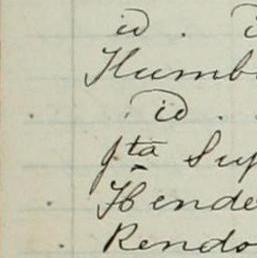 id . id
Humb
. id .
fta Sup
Hende
Rendo